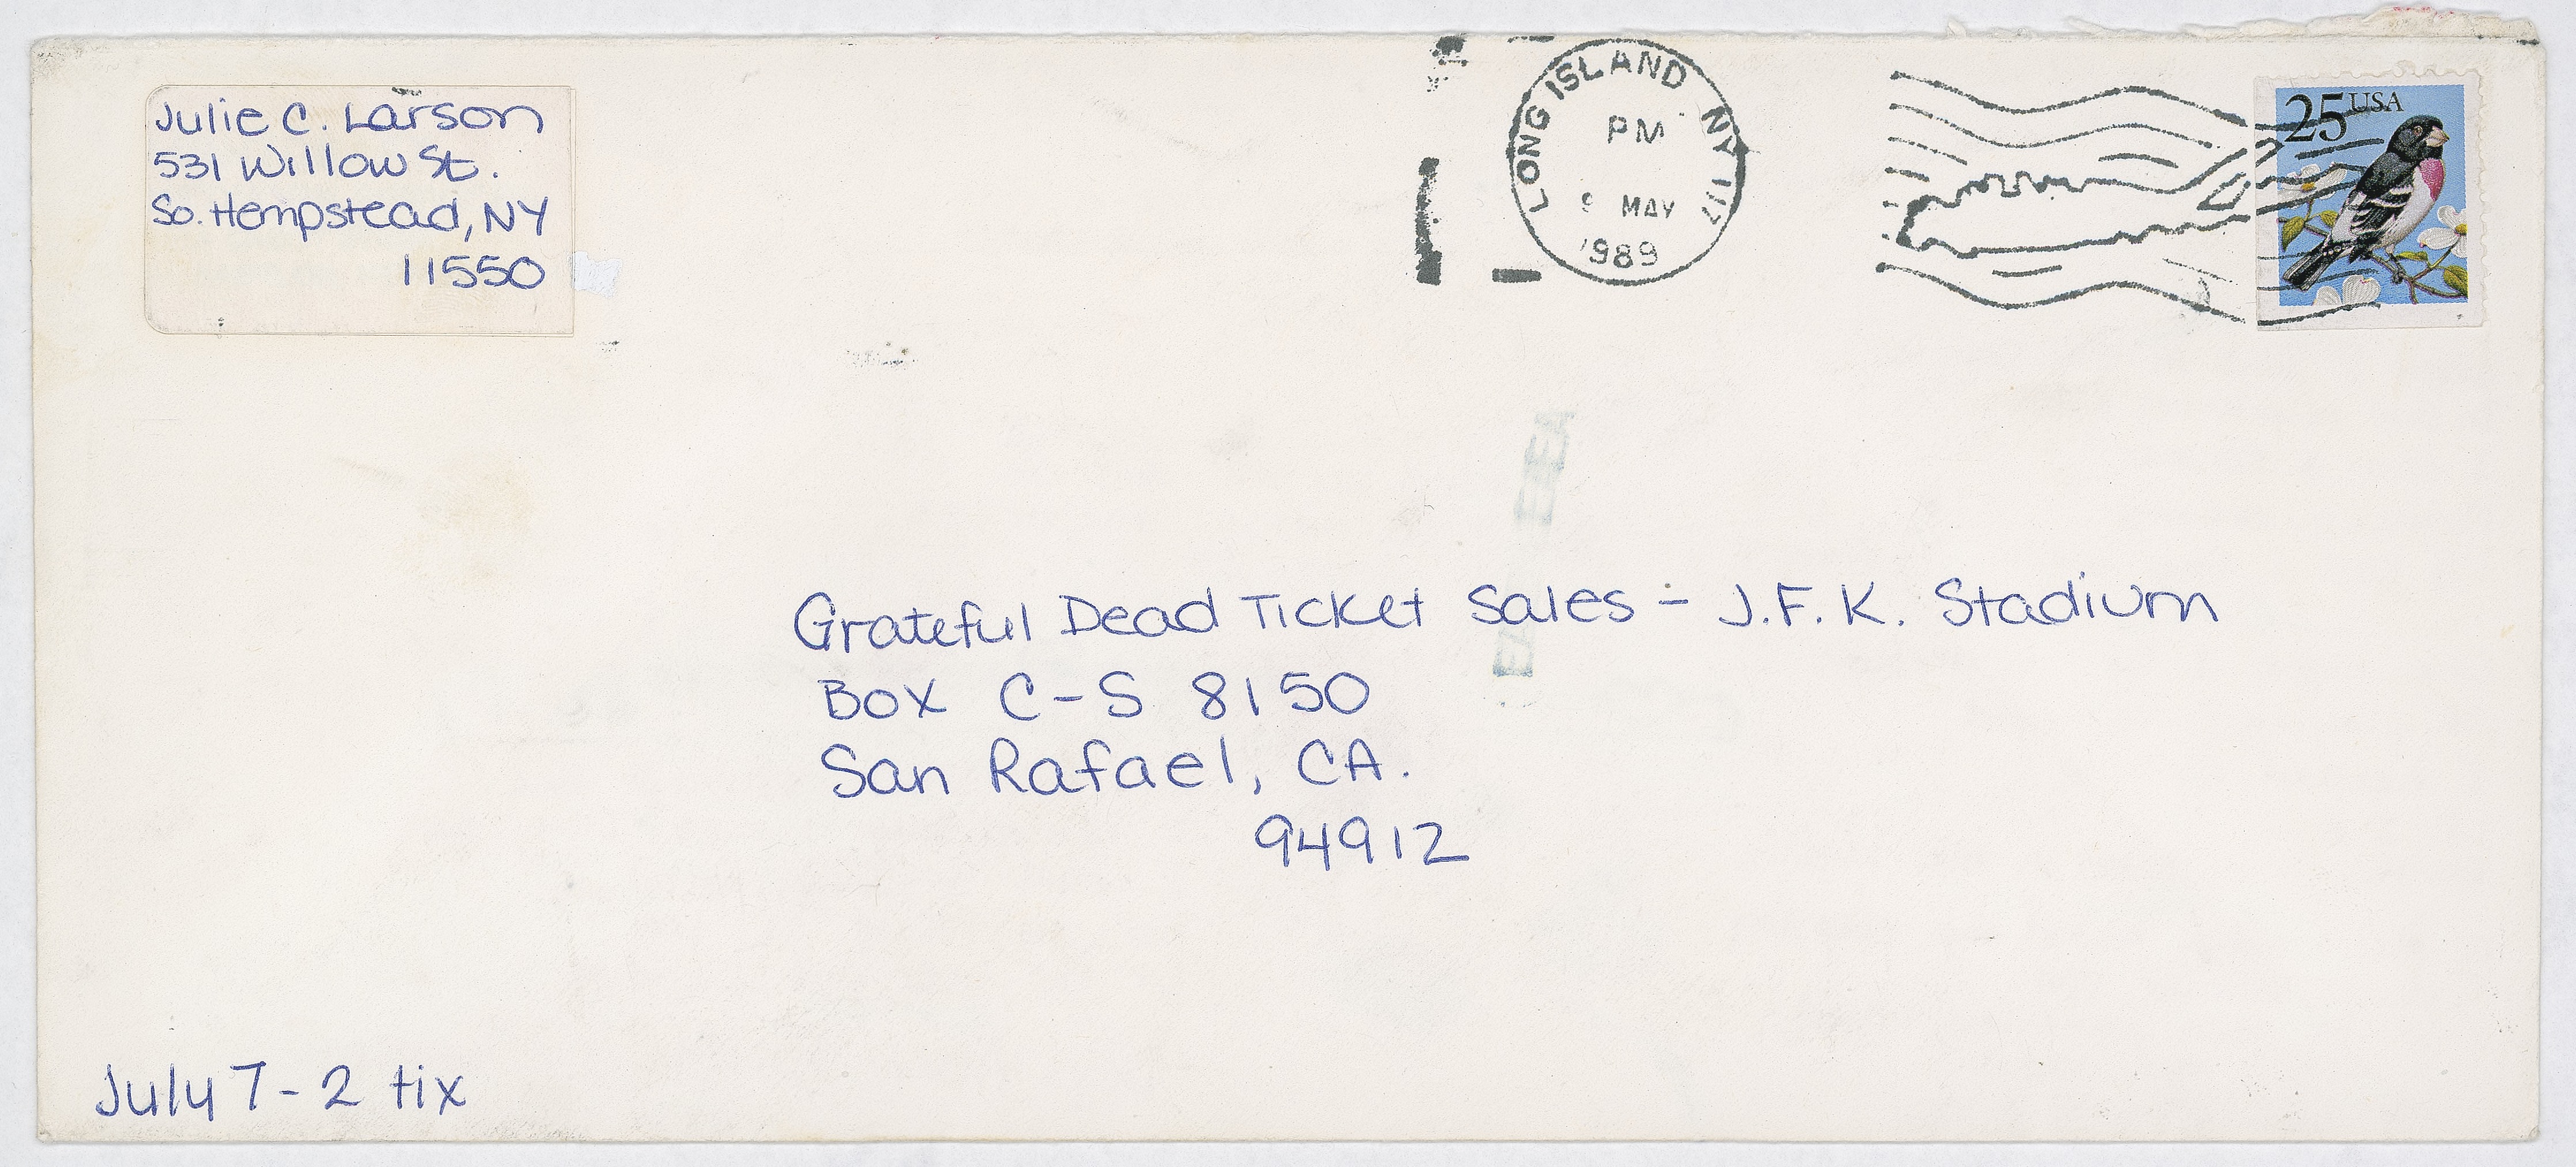 Julie C. Larson
531 Willow St.
So. Hempstead, NY
11550
LONG ISLAND NY 117
PM
9 MAY
1989
25 USA
Grateful Dead Ticket Sales - J.F.K. Stadium
Box C-S 8150
San Rafael, CA.
94912
July 7 - 2 tix